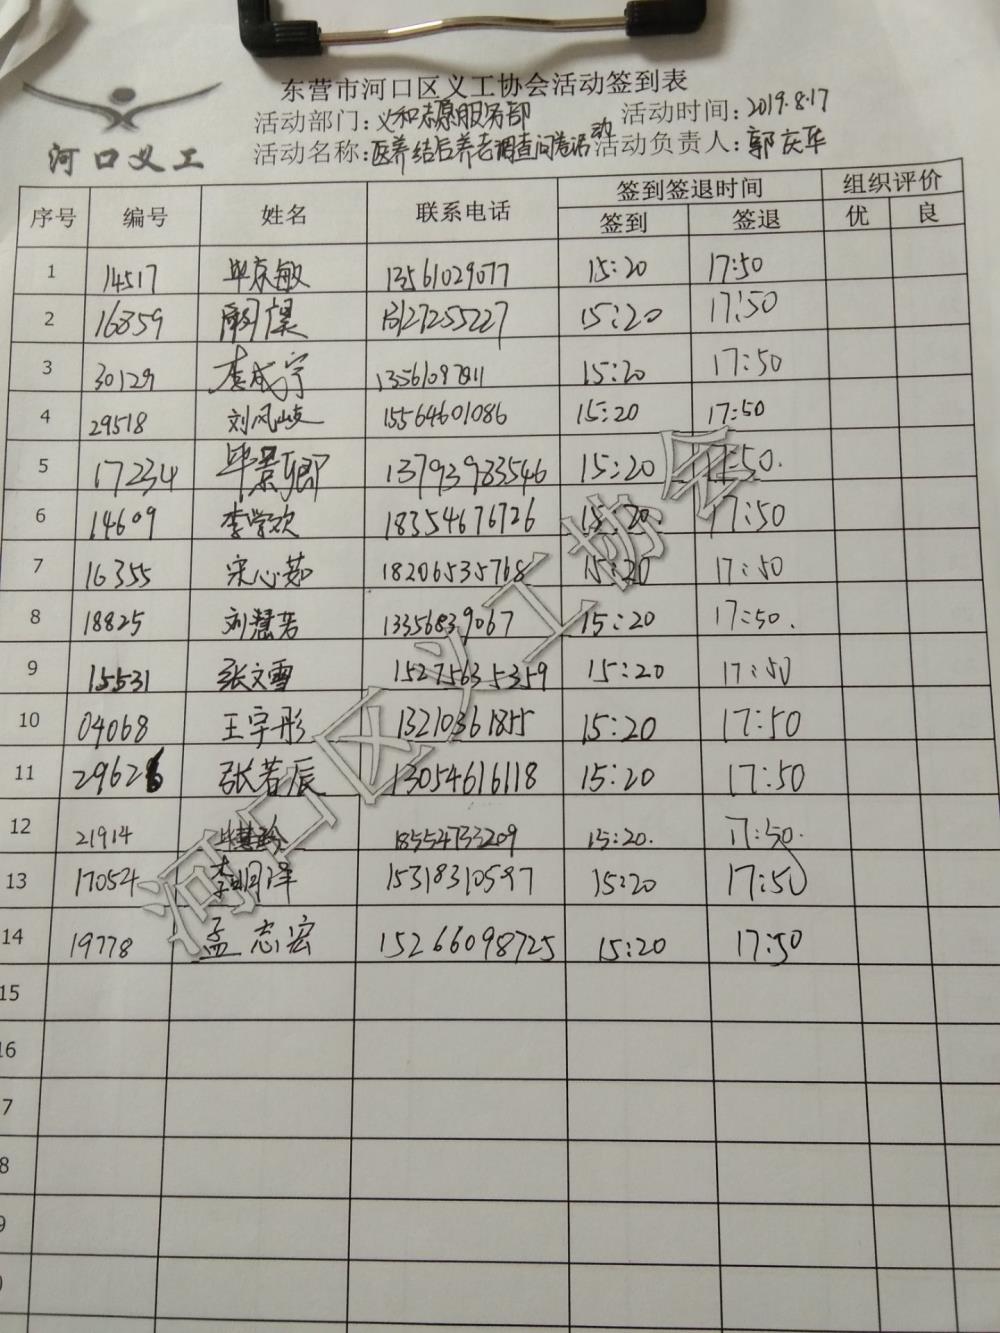 东营市河口区义工协会活动签到表
河口义工
活动部门：义和志愿服务部 活动时间：2019.8.17
活动名称：医养结合养老调查问卷活动 活动负责人：郭庆华
序号 编号 姓名 联系电话 签到签退时间 组织评价
签到 签退 优 良
1 14517 毕京敏 13561029077 15:20 17:50
2 16859 15:20 17:50
3 30129 李成宇 15:20 17:50
4 29518 刘凤岐 15564601086 15:20 17:50
5 17234 毕景卿 13793983546 15:20 17:50.
6 14609 李学欢 18354676726 15:20. 17:50
7 16355 宋心茹 18206535768 15:20 17:50
8 18825 刘慧芳 13356839067 15:20 17:50.
9 15531 张文雪 15275635359 15:20 17:50
10 04068 王宇彤 13210361855 15:20 17:50
11 29626 张若辰 13054616118 15:20 17:50
12 21914 18554733209 15:20. 17:50.
13 17054 李明泽 15318310597 15:20 17:50
14 19778 孟志宏 15266098725 15:20 17:50
15
16
7
8
9
河口区义工协会